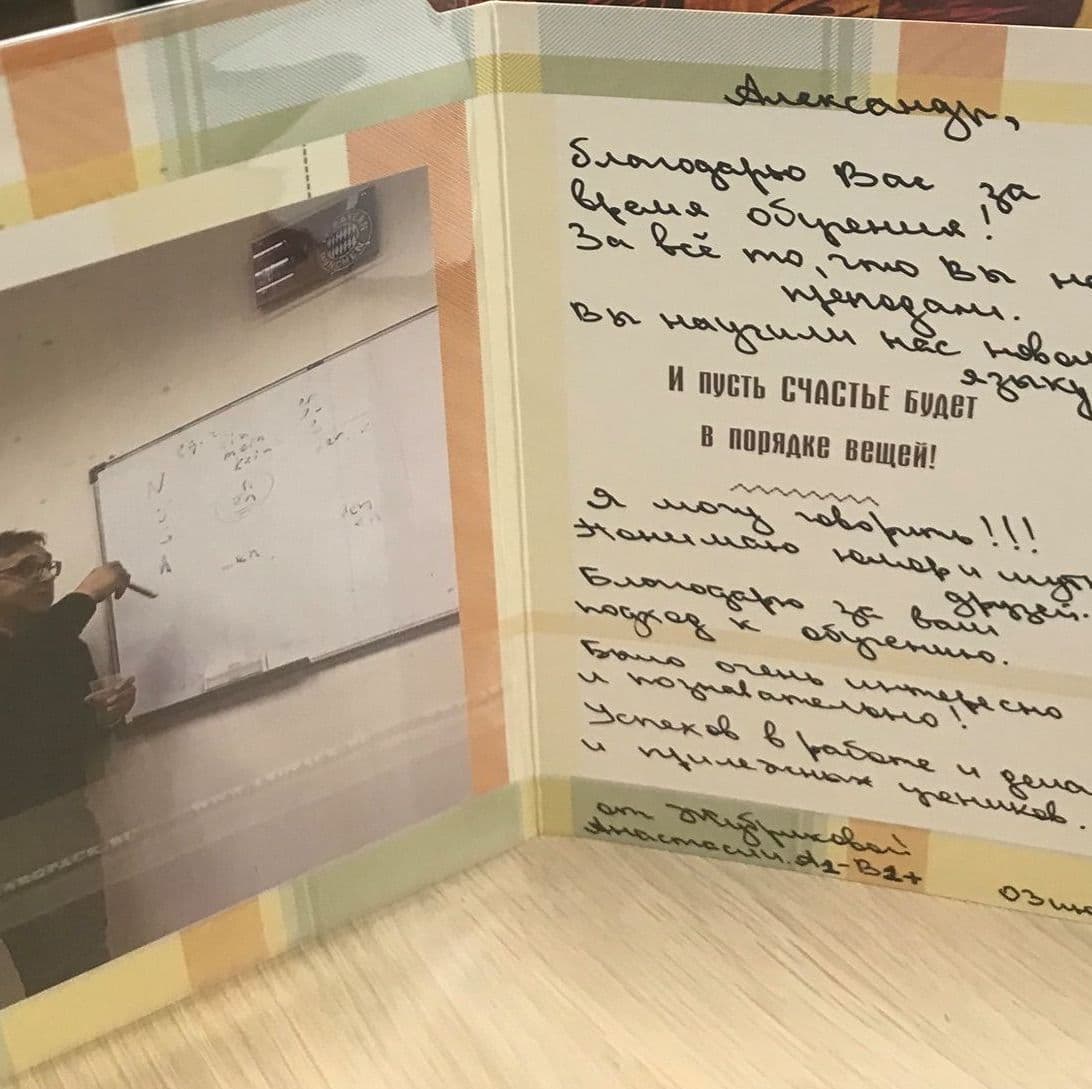 Александр,
Благодарю Вас за
время обучения!
За всё то, что Вы на
преподали.
Вы научили нас ново
языку
И пусть СЧАСТЬЕ будет
в порядке вещей!
Я могу говорить!!!
Понимаю юмор и шут
друзей.
Благодарю за ваш
подход к обучению.
Было очень интересно
и познавательно!
Успехов в работе и дела
и прилежных учеников.
от
Анастасии. А1-В1+
03 ию
BAYERN
MÜNCHEN
N
A
mein
kein
den